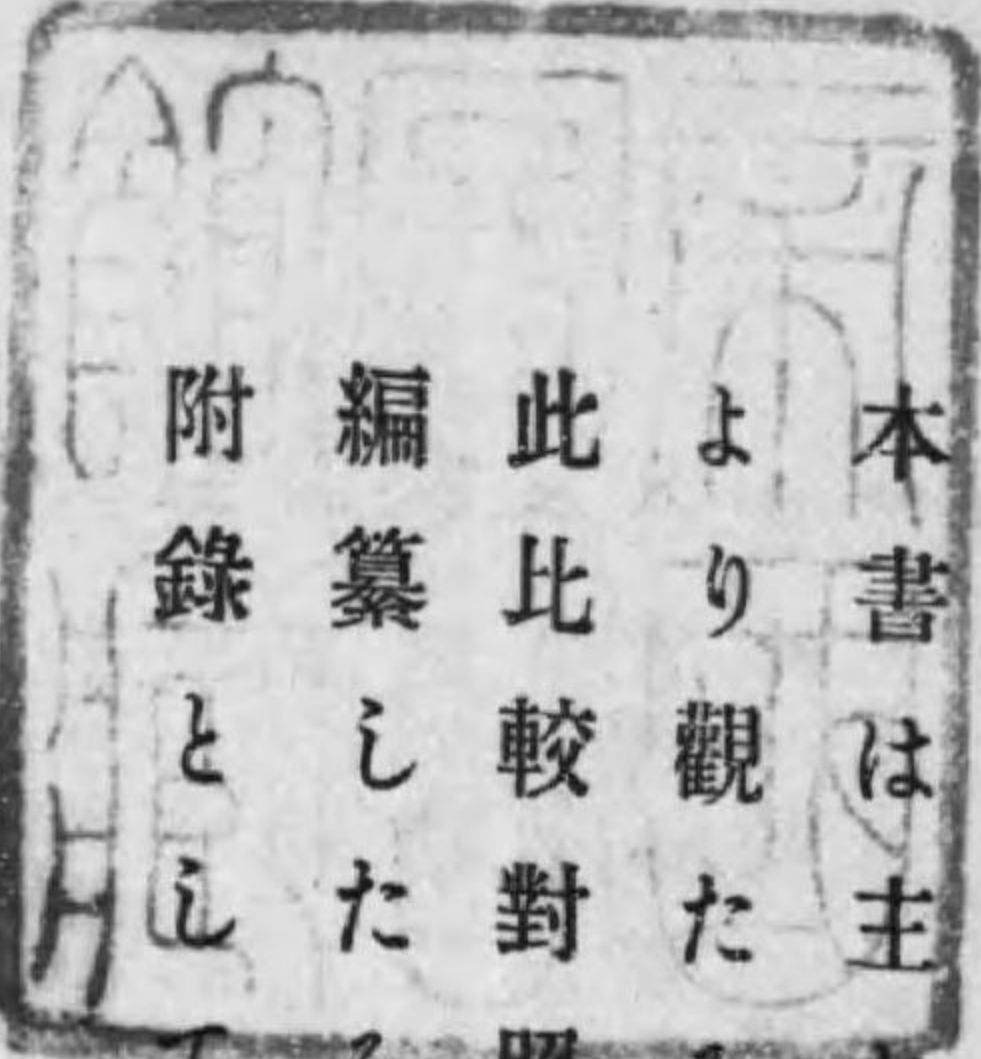 本書は主
より觀た
此比較對照
編纂した
附錄とし